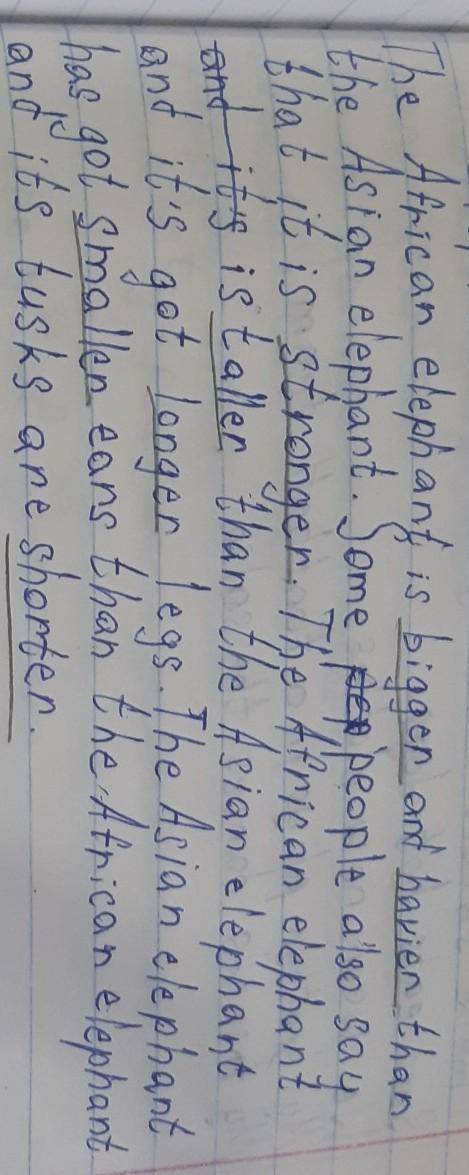 The African elephant is bigger and havier than
the Asian elephant. Some people also say
that it is stronger. The African elephant
and it's is taller than the Asian elephant
and it's got longer legs. The Asian elephant
has got smaller ears than the African elephant
and it's tusks are shorter.